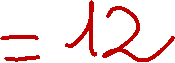 = 12